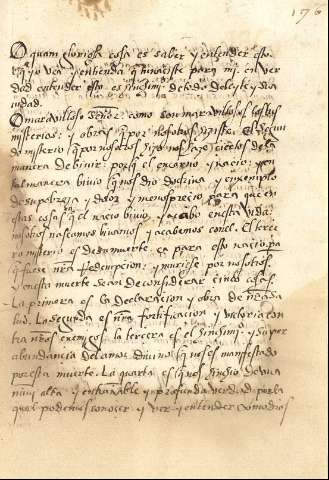 176
O quam gloriosa cosa es saber y entender esto
q yo vea y entienda q naciste para mi en ver
dad entender esto es sinchim̃. de todo deleyte y sua
uidad.
O marauilloso señor como son marauillosos los tus
misterios. y obras q por nosotros heziste. El segun
do misterio q por nosotros hizo nos haze ciertos de la
manera de biuir. porq̃ el encarno y nacio. y en
tal manera biuio q nos dio doctrina y enxemplo
de su pobreza y dolor y menosprecio para que en
estas cosas q el nacio biuio y acabo en esta vida
nosotros nascamos biuamos y acabemos con el. El terce
ro misterio es de su muerte. ca para esto nacio pa
q fuese nr̃a Redempcion y muriese por nosotros
y en esta muerte se an de considerar cinco cosas.
La primera es la declaracion y obra de nr̃a sa
lud. La segunda es nr̃a fortificacion y victoria con
tra nr̃os enemigos la tercera es el sinchim̃. y super
abundancia del amor diuino q nos es manifestado
por esta muerte. La quarta es q nos de una
mui alta y entrañable y profunda verdad por la
qual podemos conocer y ver y entender como dios